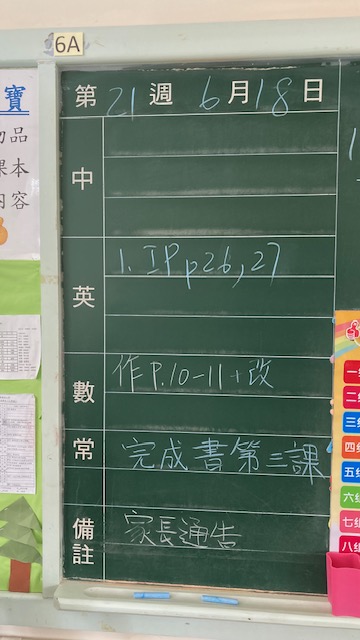 6A
第 21 週 6 月 18 日
中
英
1. IP p26, 27
數
作 P.10-11 + 改
常
完成書第三課
備註
家長通告
寶
物品
課本
內容
一
二
三組
四組
五組
六組
七組
八組